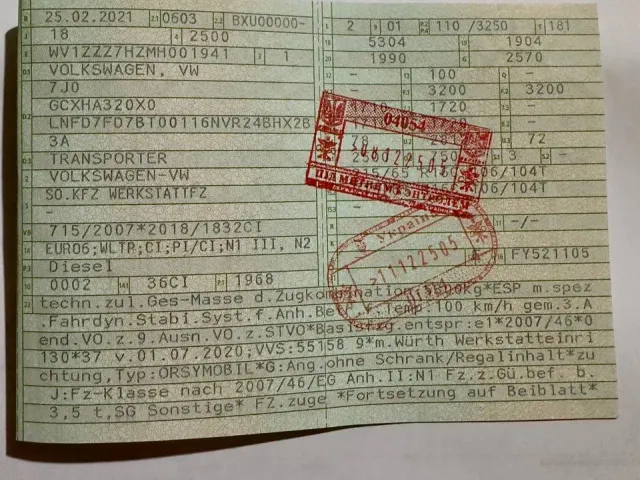 B 25.02.2021 2.1 0603 2.2 BXU00000- L 2 9 01 P.2 P.4 110 /3250 T 181
J 18 4 2500 18 5304 19 1904
E WV1ZZZ7HZMH001941 3 1 20 1990 G 2570
D.1 VOLKSWAGEN, VW 12 - 13 100 Q -
7J0 V.7 - F.1 3200 F.2 3200
D.2 GCXHA320X0 1720
LNFD7FD7BT00116NVR24BHX2B
3A 72
D.3 TRANSPORTER S.1 3 S.2 -
2 VOLKSWAGEN-VW /65 106/104T
5 SO.KFZ WERKSTATTFZ 106/104T
-
V.9 715/2007*2018/1832CI 11 -/-
14 EURO6;WLTP;CI;PI/CI;N1 III, N2
P.3 Diesel 4 16 FY521105
10 0002 14.1 36CI P.1 1968
22 techn.zul.Ges-Masse d.Zugkombination m.spez
.Fahrdyn.Stabi.Syst.f.Anh.Be Temp.100 km/h gem.3.A
end.VO.z.9.Ausn.VO.z.STVO*Basisfzg.entspr:e1*2007/46*0
130*37 v.01.07.2020;VVS:55158 9*m.Würth Werkstatteinri
chtung,Typ:ORSYMOBIL*G:Ang.ohne Schrank/Regalinhalt*zu
J:Fz-Klasse nach 2007/46/EG Anh.II:N1 Fz.z.Gü.bef. b.
3,5 t,SG Sonstige* FZ.zuge *Fortsetzung auf Beiblatt*
04054
Україна